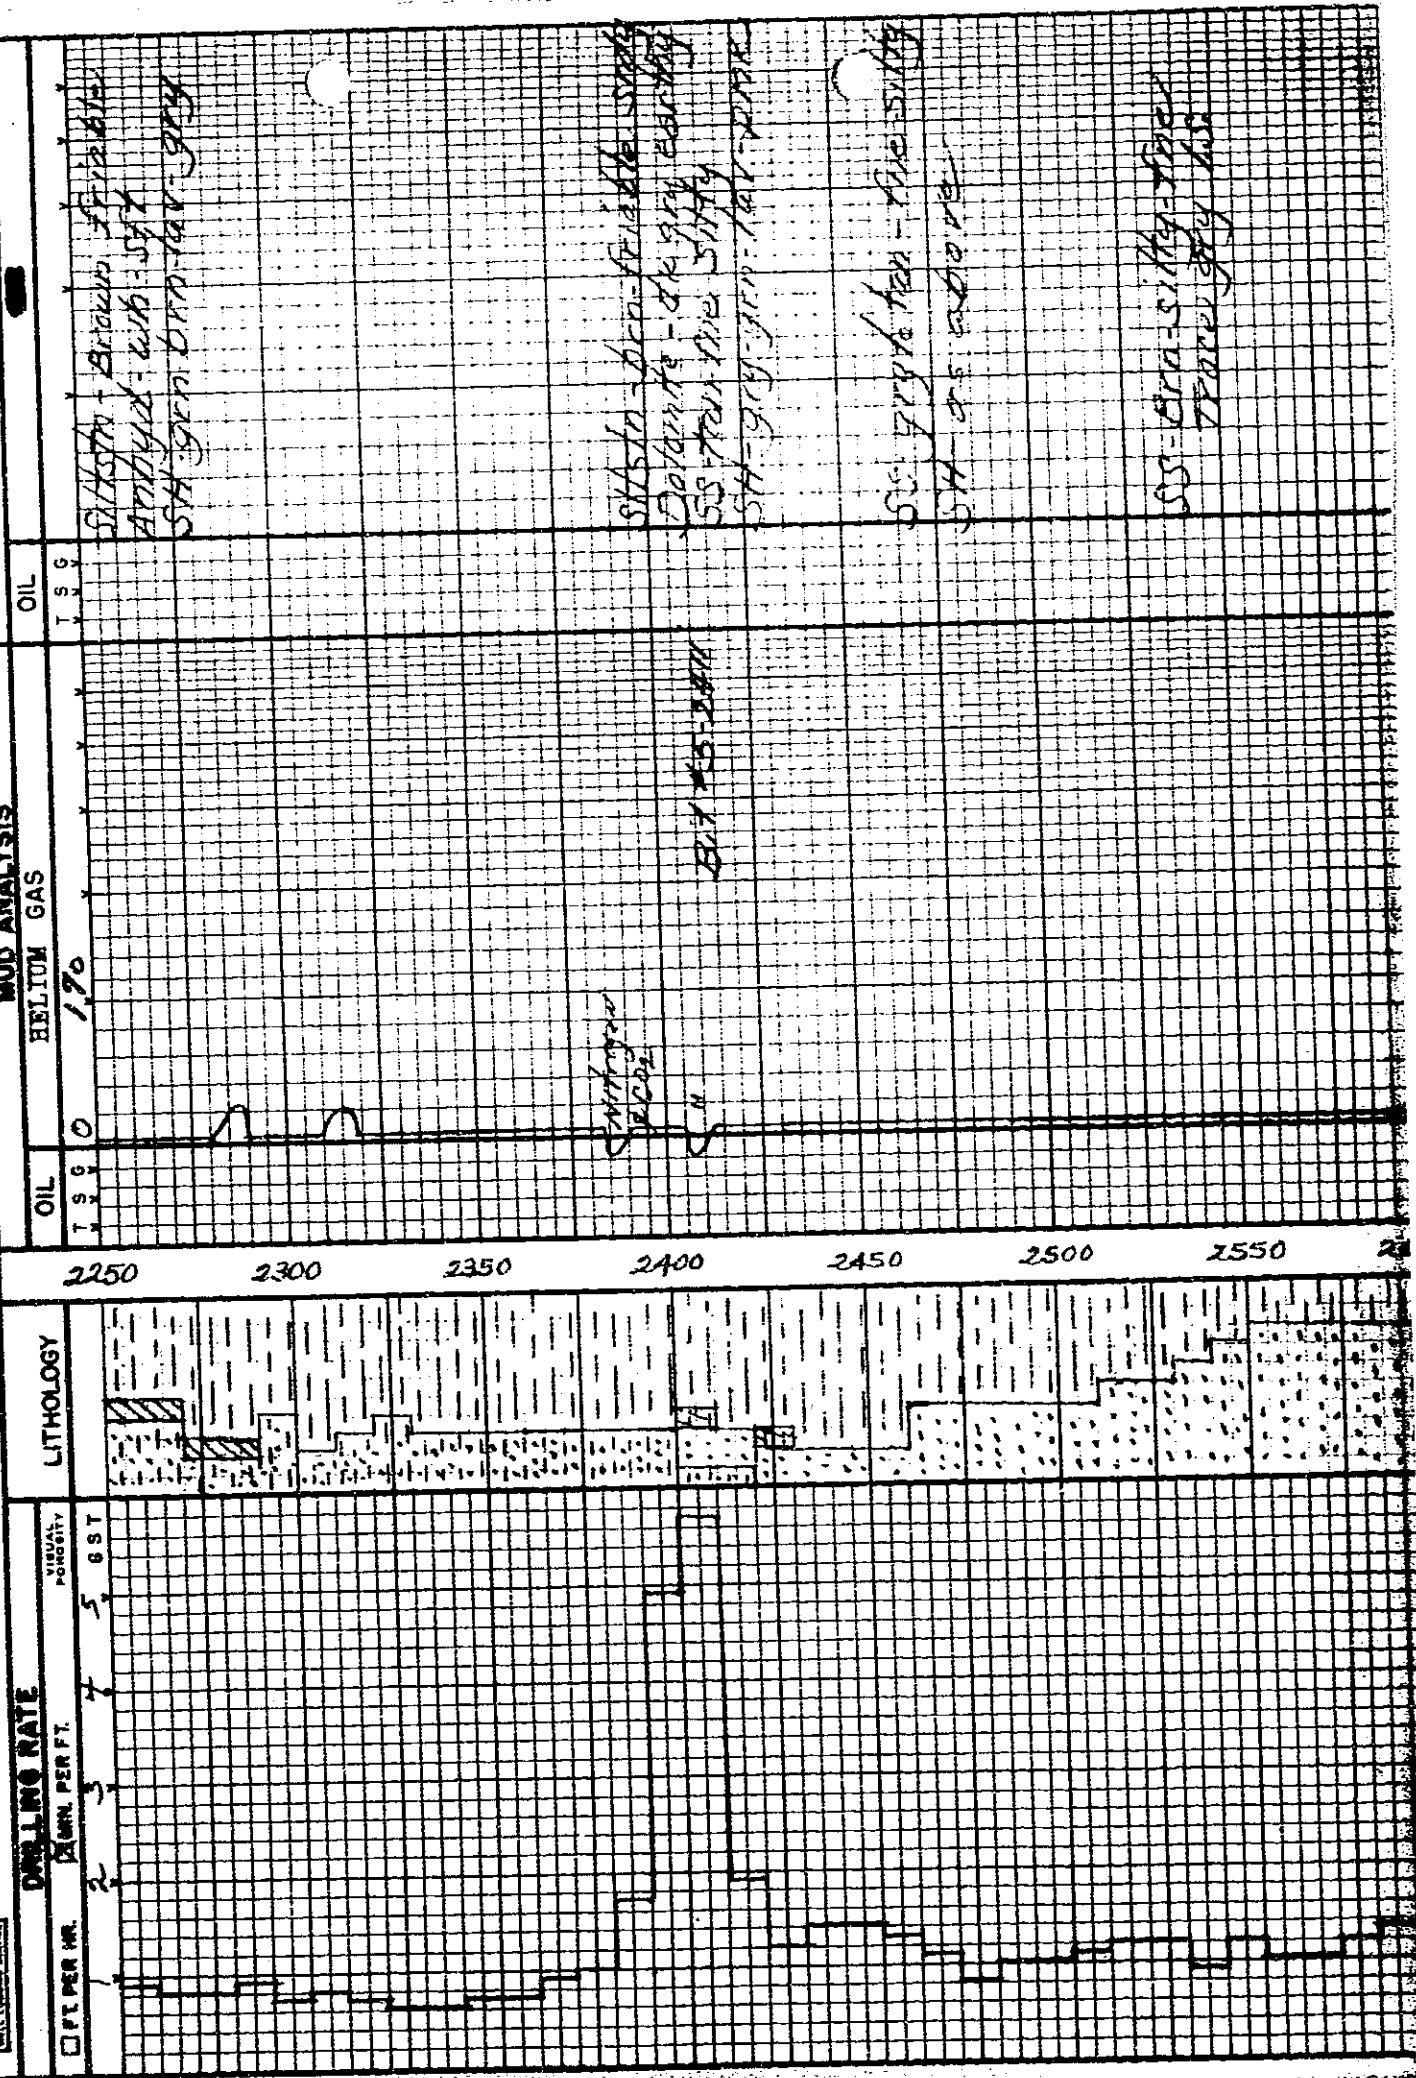 DRILLING RATE
☐ FT PER HR.
☒ MIN. PER FT.
VISUAL POROSITY
1 2 3 4 5
G S T
LITHOLOGY
2250
2300
2350
2400
2450
2500
2550
MUD ANALYSIS
OIL
HELIUM GAS
OIL
T S G
0
1%
T S G
Nitrogen
& CO2
"
Bit #3-2411
Siltstn - Brown friable
Anhyd - wh - sft
SH - grn - brn - lav - gry
Siltstn - brn - friable - sndy
Dolomite - dk gry earthy
SS - tran fine silty
SH - gry - grn - lav - pink
SS - gry to tran - fine - silty
SH - as above
SS - Brn - silty - fine
Trace gry LS.